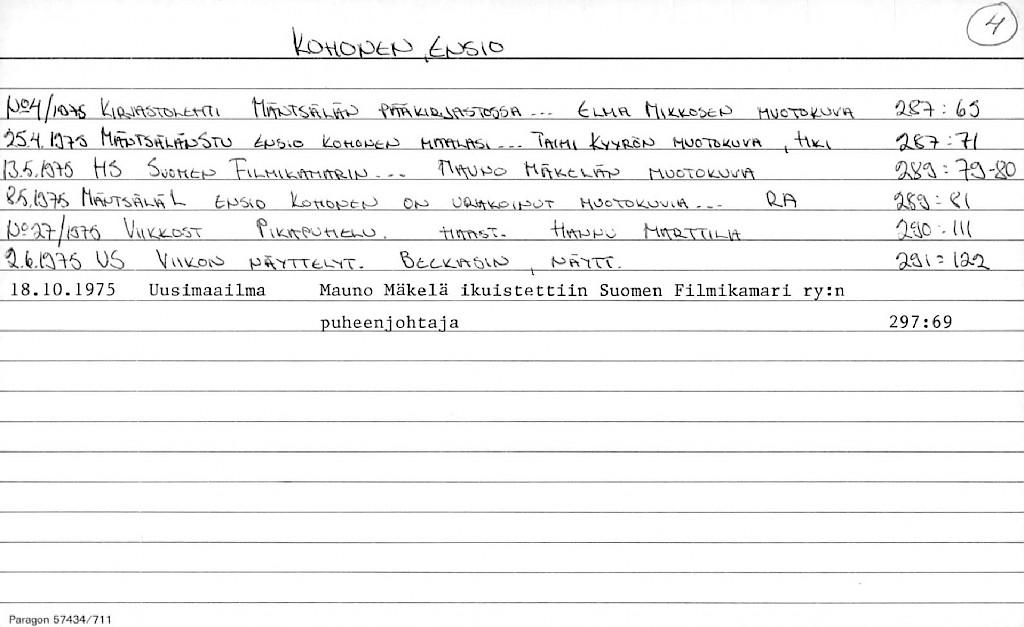 4
KOHONEN, ENSIO
No4/1975 KIRJASTOLEHTI MÄNTSÄLÄN PÄÄKIRJASTOSSA... ELMA MIKKOSEN MUOTOKUVA 287:65
25.4.1975 MÄNTSÄLÄNSTU ENSIO KOHONEN MAALASI... TAIMI KYYRÖN MUOTOKUVA, HKI 287:71
13.5.1975 HS SUOMEN FILMIKAMARIN... MAUNO MÄKELÄN MUOTOKUVA 289:79-80
8.5.1975 MÄNTSÄLÄ L ENSIO KOHONEN ON URAKOINUT MUOTOKUVIA... RA 289:81
No27/1975 VIIKKOST PIKAPUHELU. HAAST. HANNU MARTTILA 290:111
2.6.1975 US VIIKON NÄYTTELYT. BECKASIN, NÄYTT. 291:122
18.10.1975 Uusimaailma Mauno Mäkelä ikuistettiin Suomen Filmikamari ry:n
puheenjohtaja 297:69
Paragon 57434/711